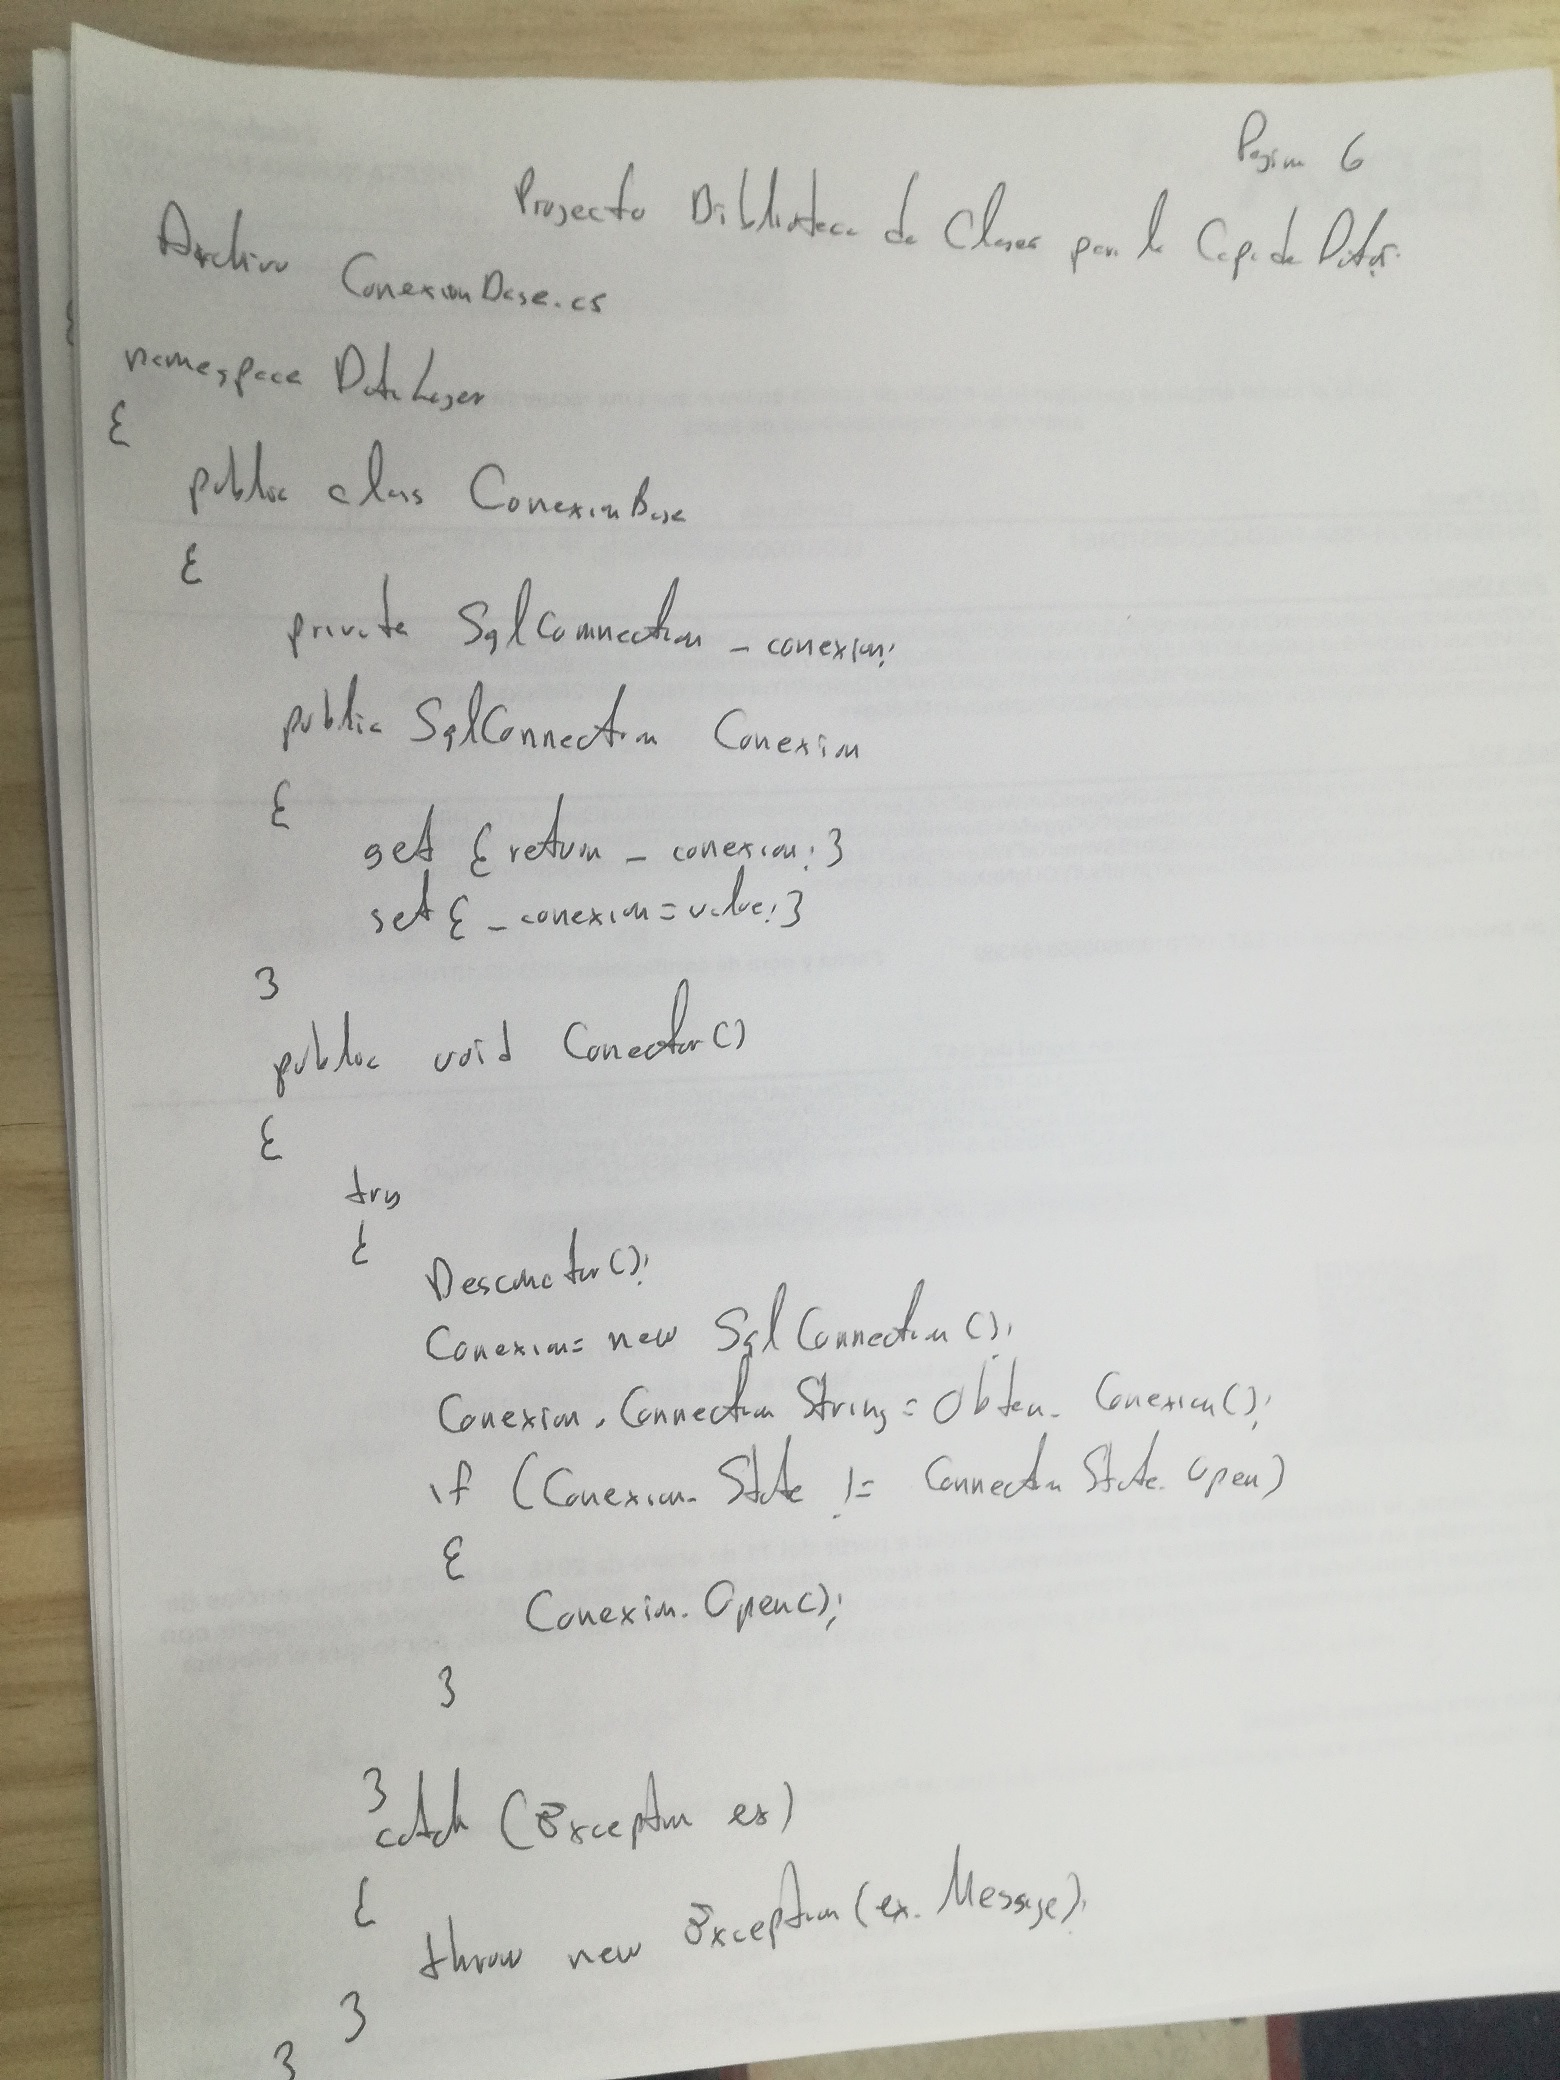 Pagina 6
Proyecto Biblioteca de Clases para la Capa de Datos.
Archivo ConexionBase.cs
namespace DataLayer
{
public class ConexionBase
{
private SqlConnection _conexion;
public SqlConnection Conexion
{
get { return _conexion; }
set { _conexion = value; }
}
public void Conectar()
{
try
{
Desconectar();
Conexion = new SqlConnection();
Conexion.ConnectionString = Obten_Conexion();
if (Conexion.State != ConnectionState.Open)
{
Conexion.Open();
}
}
catch (Exception ex)
{
throw new Exception(ex.Message);
}
}